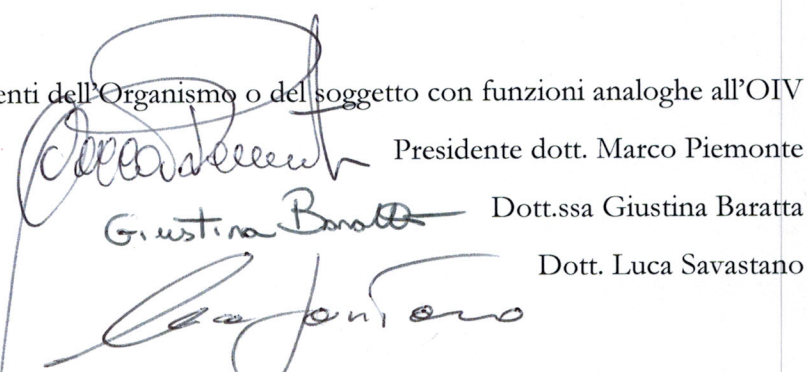 enti dell'Organismo o del soggetto con funzioni analoghe all'OIV
Presidente dott. Marco Piemonte
Giustina Baratta
Dott.ssa Giustina Baratta
Dott. Luca Savastano